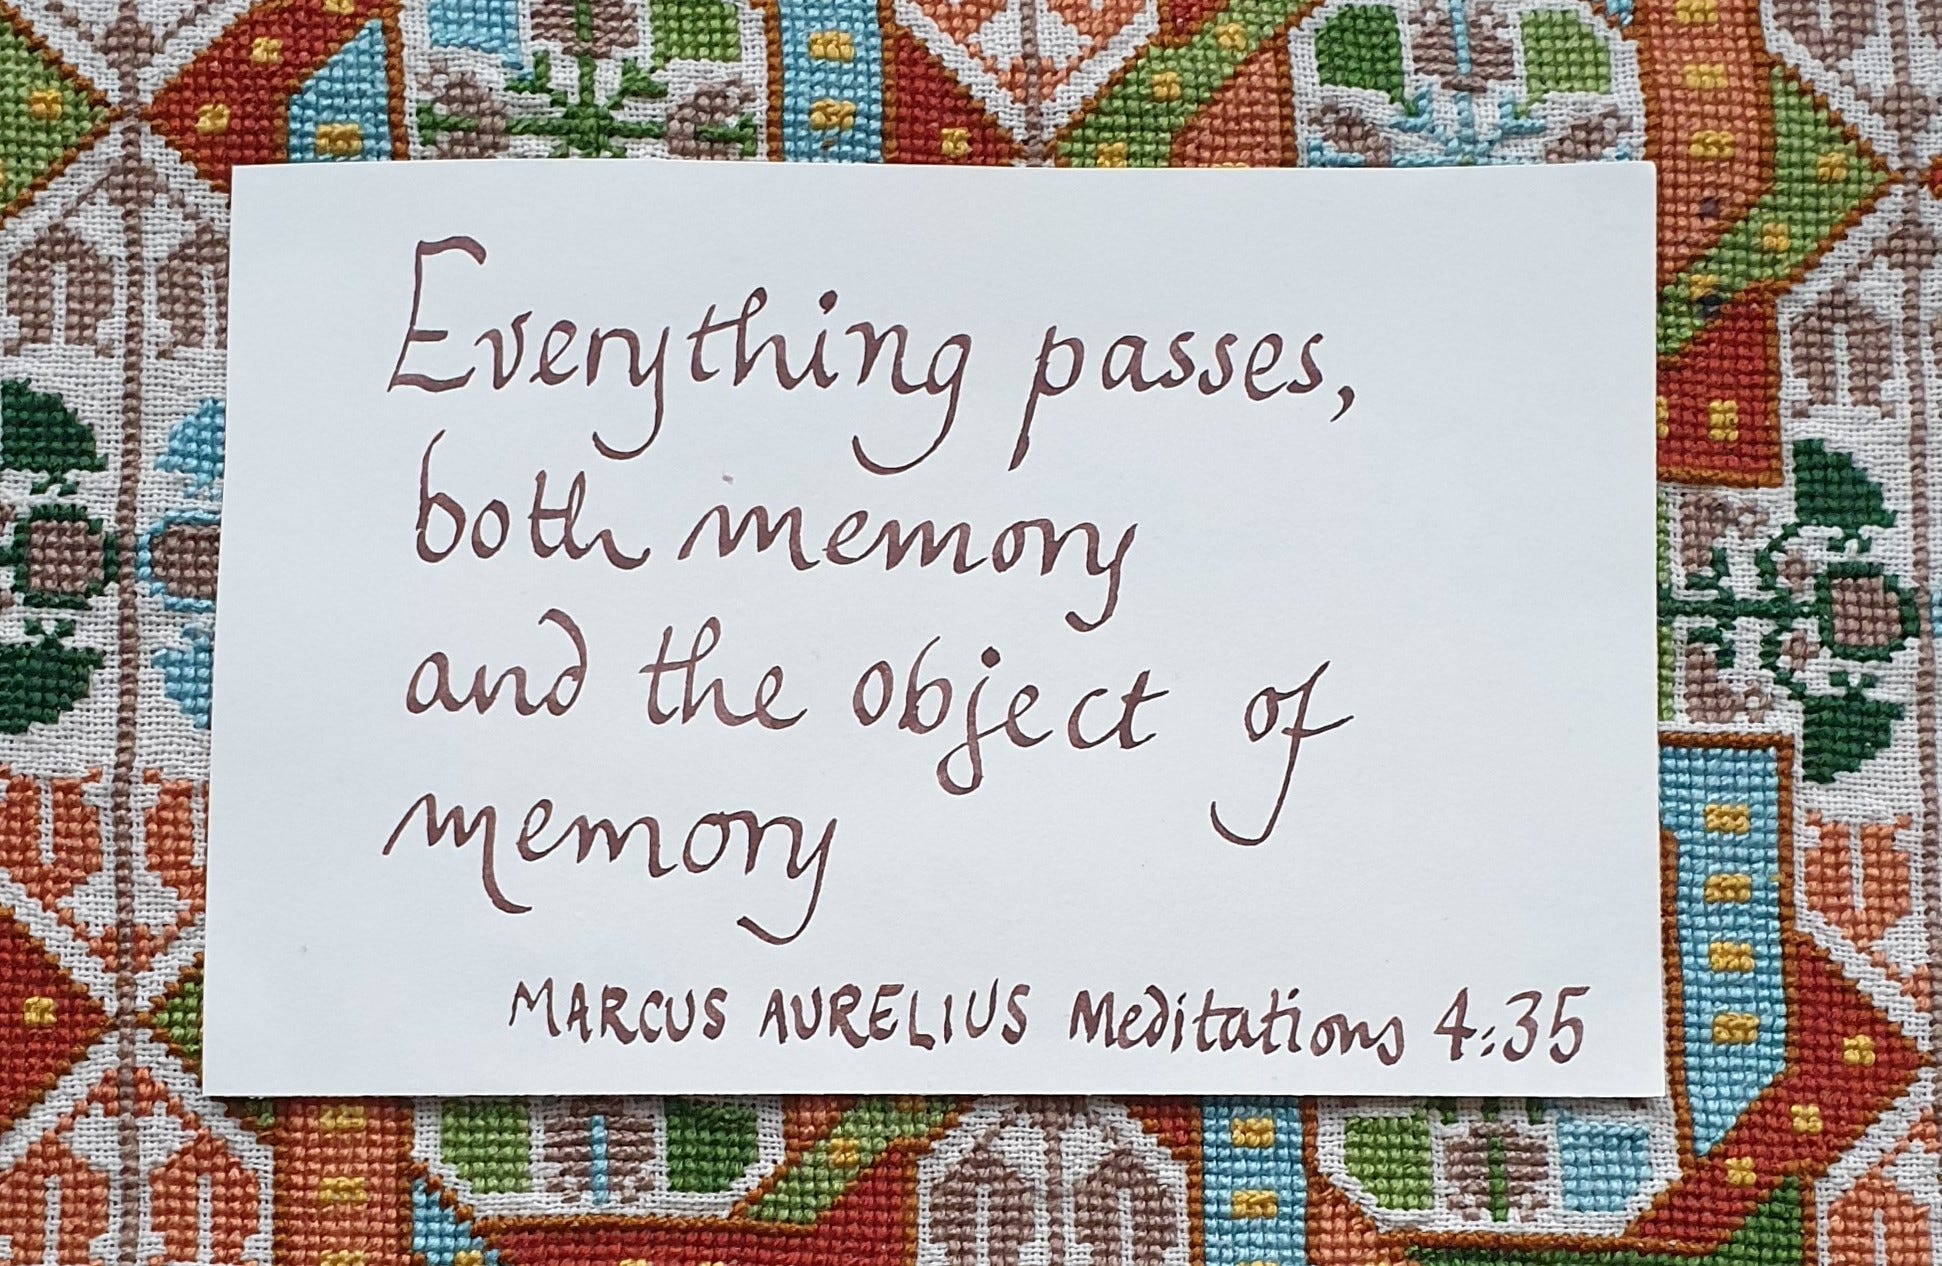 Everything passes,
both memory
and the object of
memory
MARCUS AURELIUS Meditations 4:35